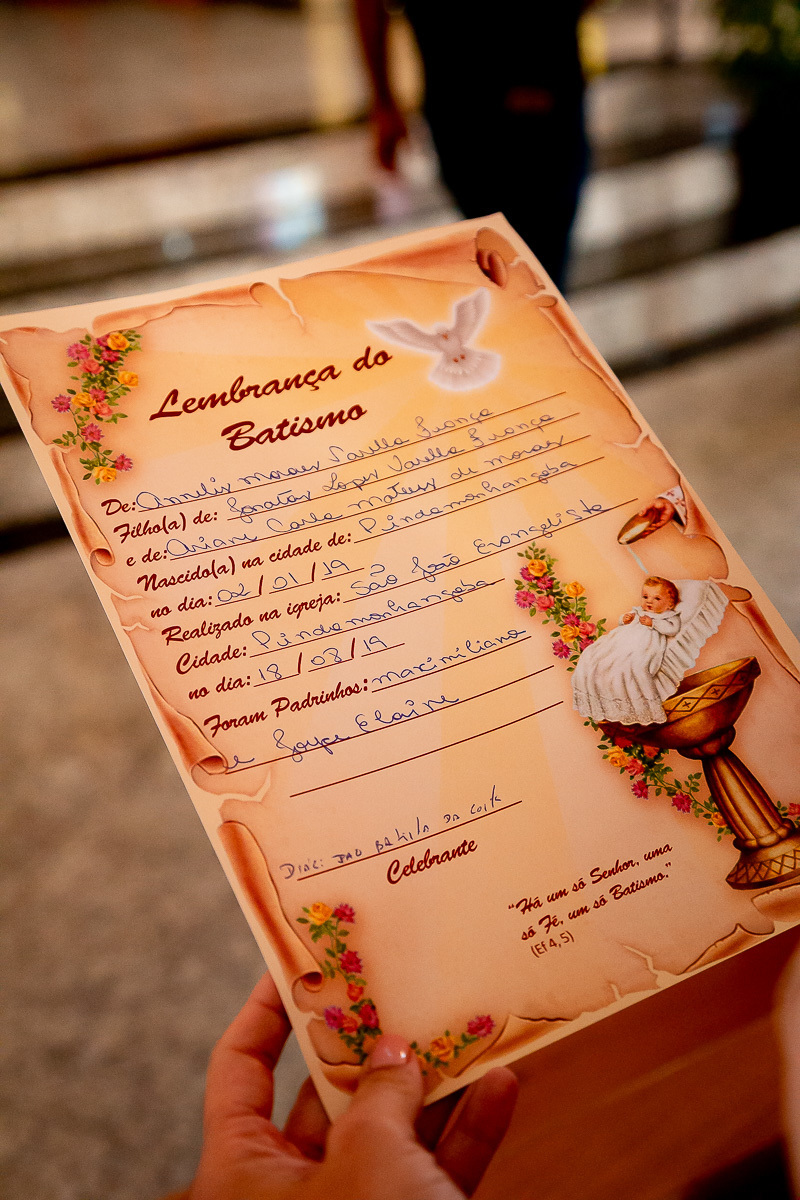 Lembrança do
Batismo
De: Annelis Moraes Varella França
Filho(a) de: Jonatas Lopes Varella França
e de: Ariane Carla Mateus de Moraes
Nascido(a) na cidade de: Pindamonhangaba
no dia: 02/01/19
Realizado na igreja: São João Evangelista
Cidade: Pindamonhangaba
no dia: 18/08/19
Foram Padrinhos: Maximiliano
e Joyce Elaine
João Batista da Costa
Celebrante
"Há um só Senhor, uma
só Fé, um só Batismo."
(Ef 4, 5)